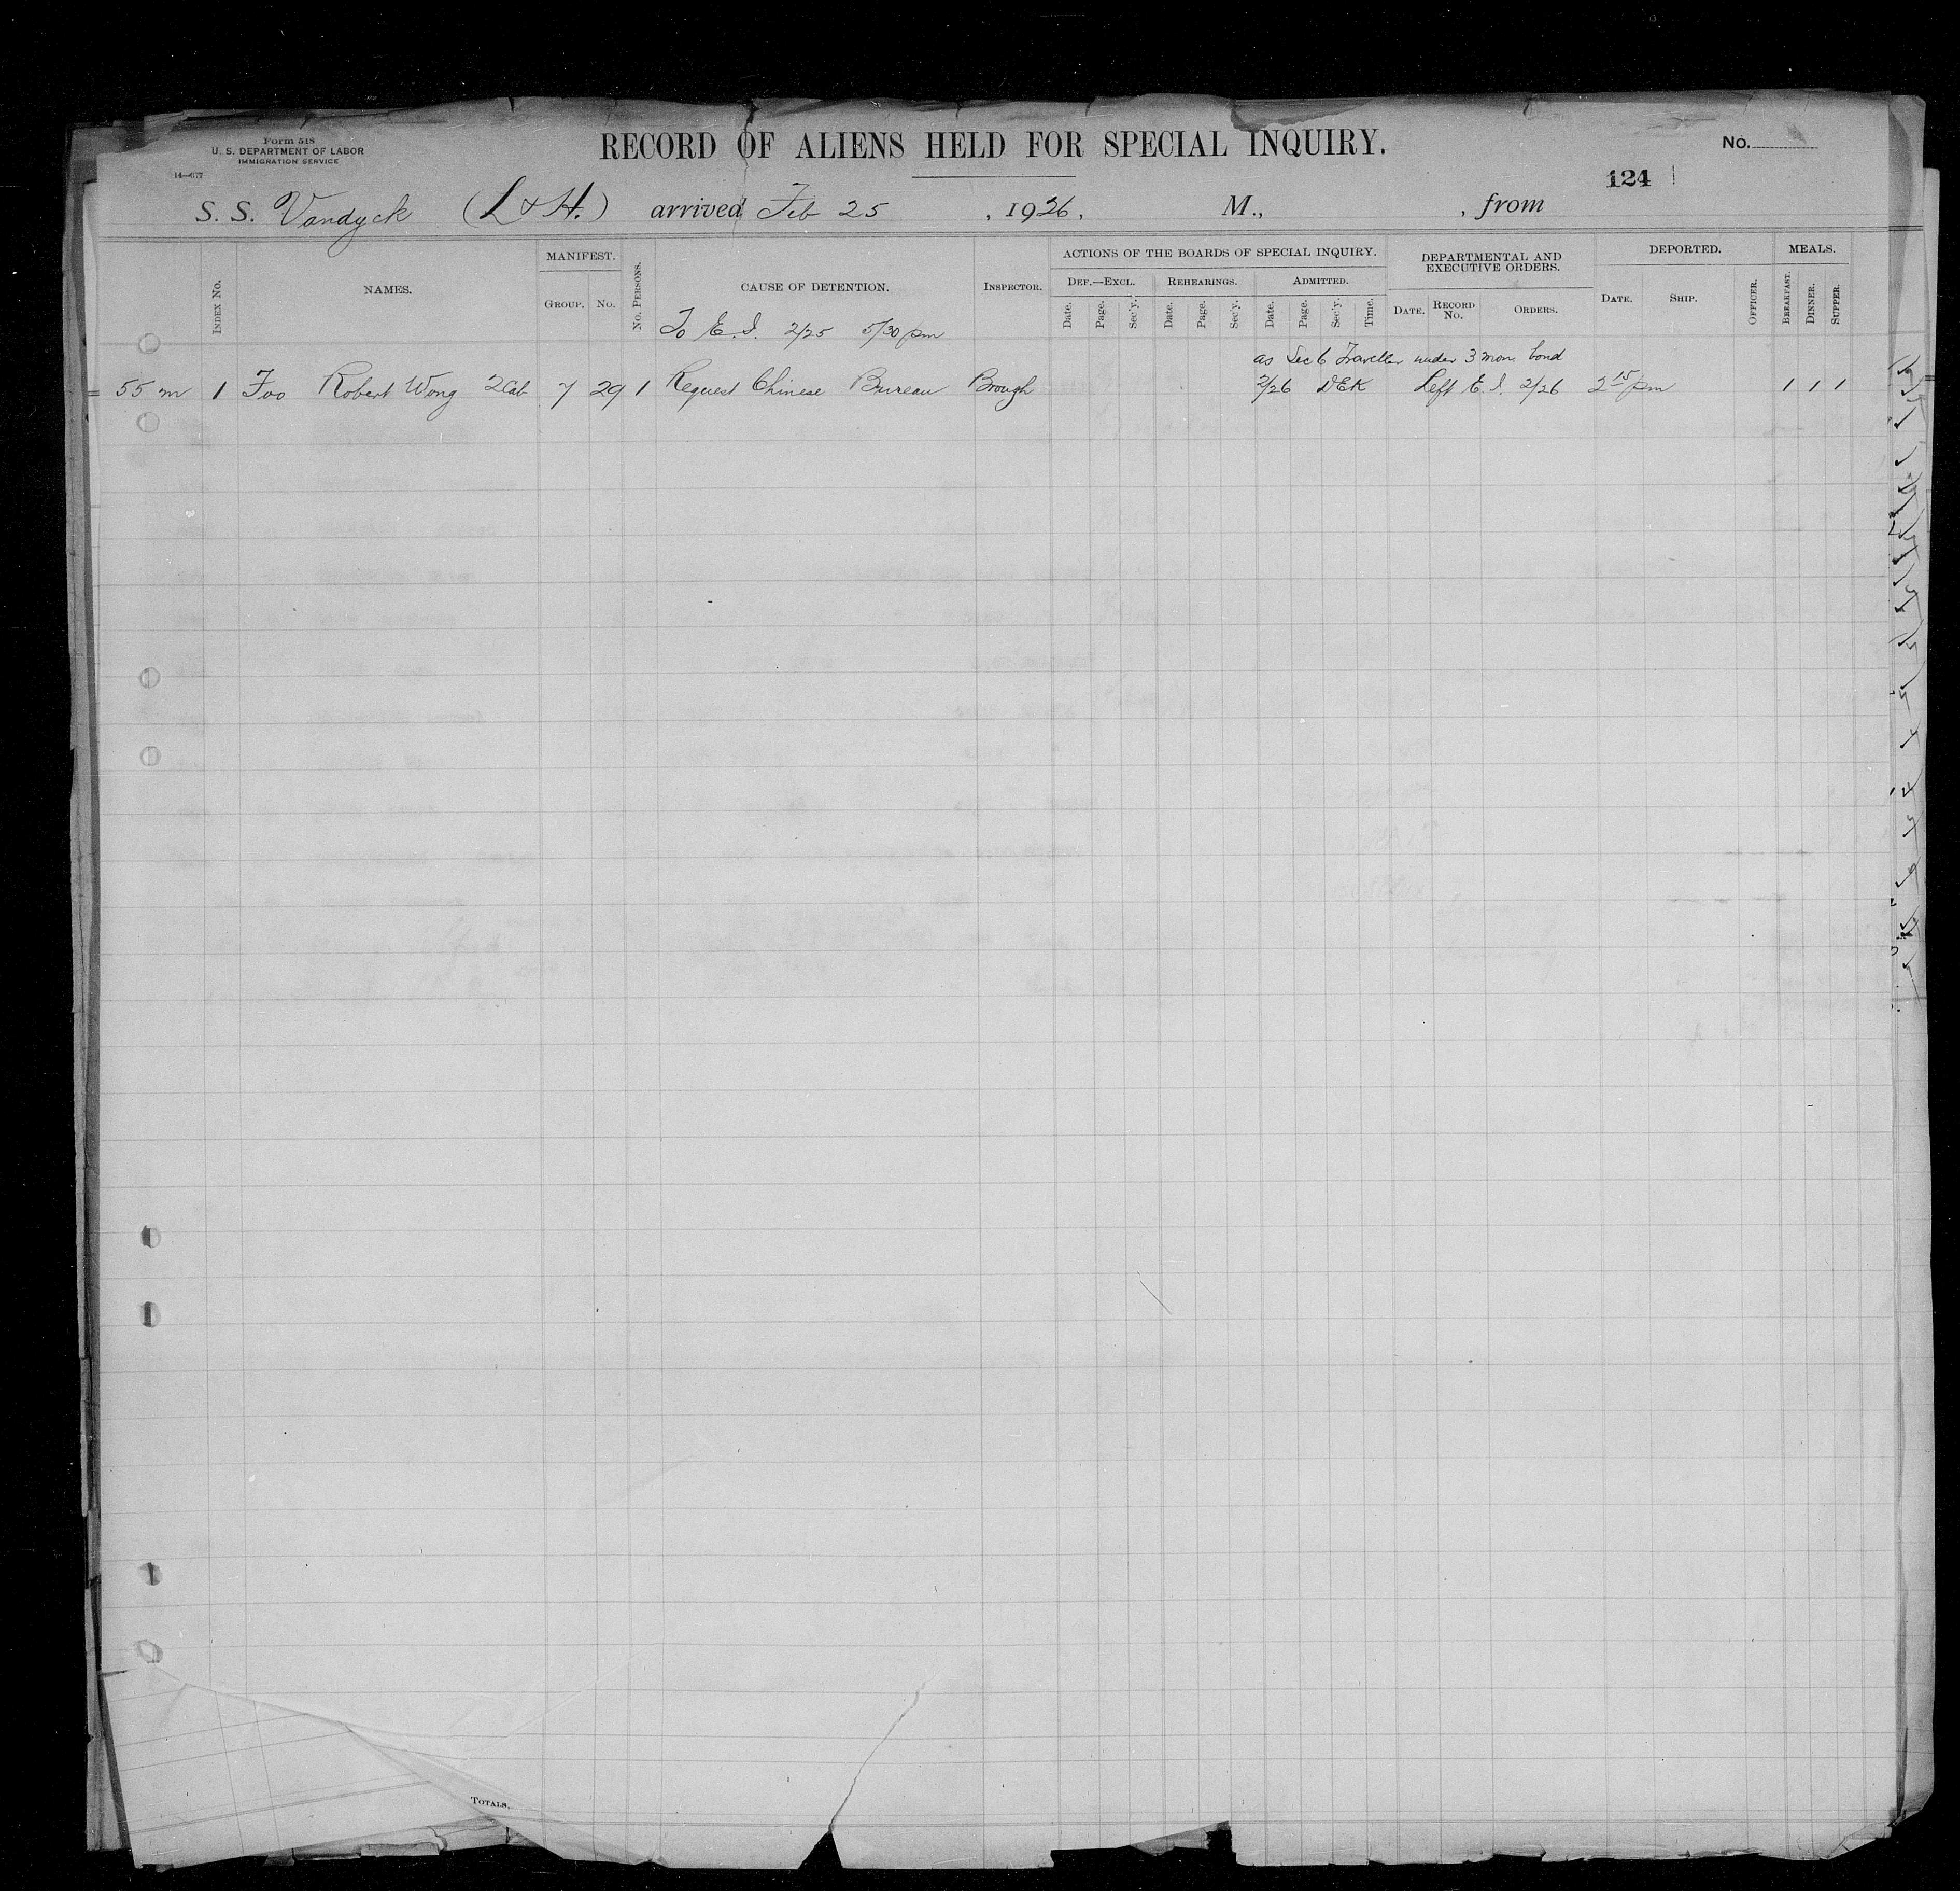 Form 518
U. S. DEPARTMENT OF LABOR
IMMIGRATION SERVICE
14—677
RECORD OF ALIENS HELD FOR SPECIAL INQUIRY.
No.
124
S. S. Vandyck (L & H.) arrived Feb 25, 1926, M., , from
INDEX No. NAMES. MANIFEST. GROUP. No. No. PERSONS. CAUSE OF DETENTION. INSPECTOR. ACTIONS OF THE BOARDS OF SPECIAL INQUIRY. DEF.—EXCL. Date. Page. Sec'y. REHEARINGS. Date. Page. Sec'y. ADMITTED. Date. Page. Sec'y. Time. DEPARTMENTAL AND EXECUTIVE ORDERS. DATE. RECORD No. ORDERS. DEPORTED. DATE. SHIP. OFFICER. MEALS. BREAKFAST. DINNER. SUPPER.
To E. I. 2/25 5/30 pm
as Sec 6 Traveller under 3 mon. bond
55 m 1 Foo Robert Wong 2Cab 7 29 1 Request Chinese Bureau Brough 2/26 DEK Left E. I. 2/26 2 15 pm 1 1 1
TOTALS.